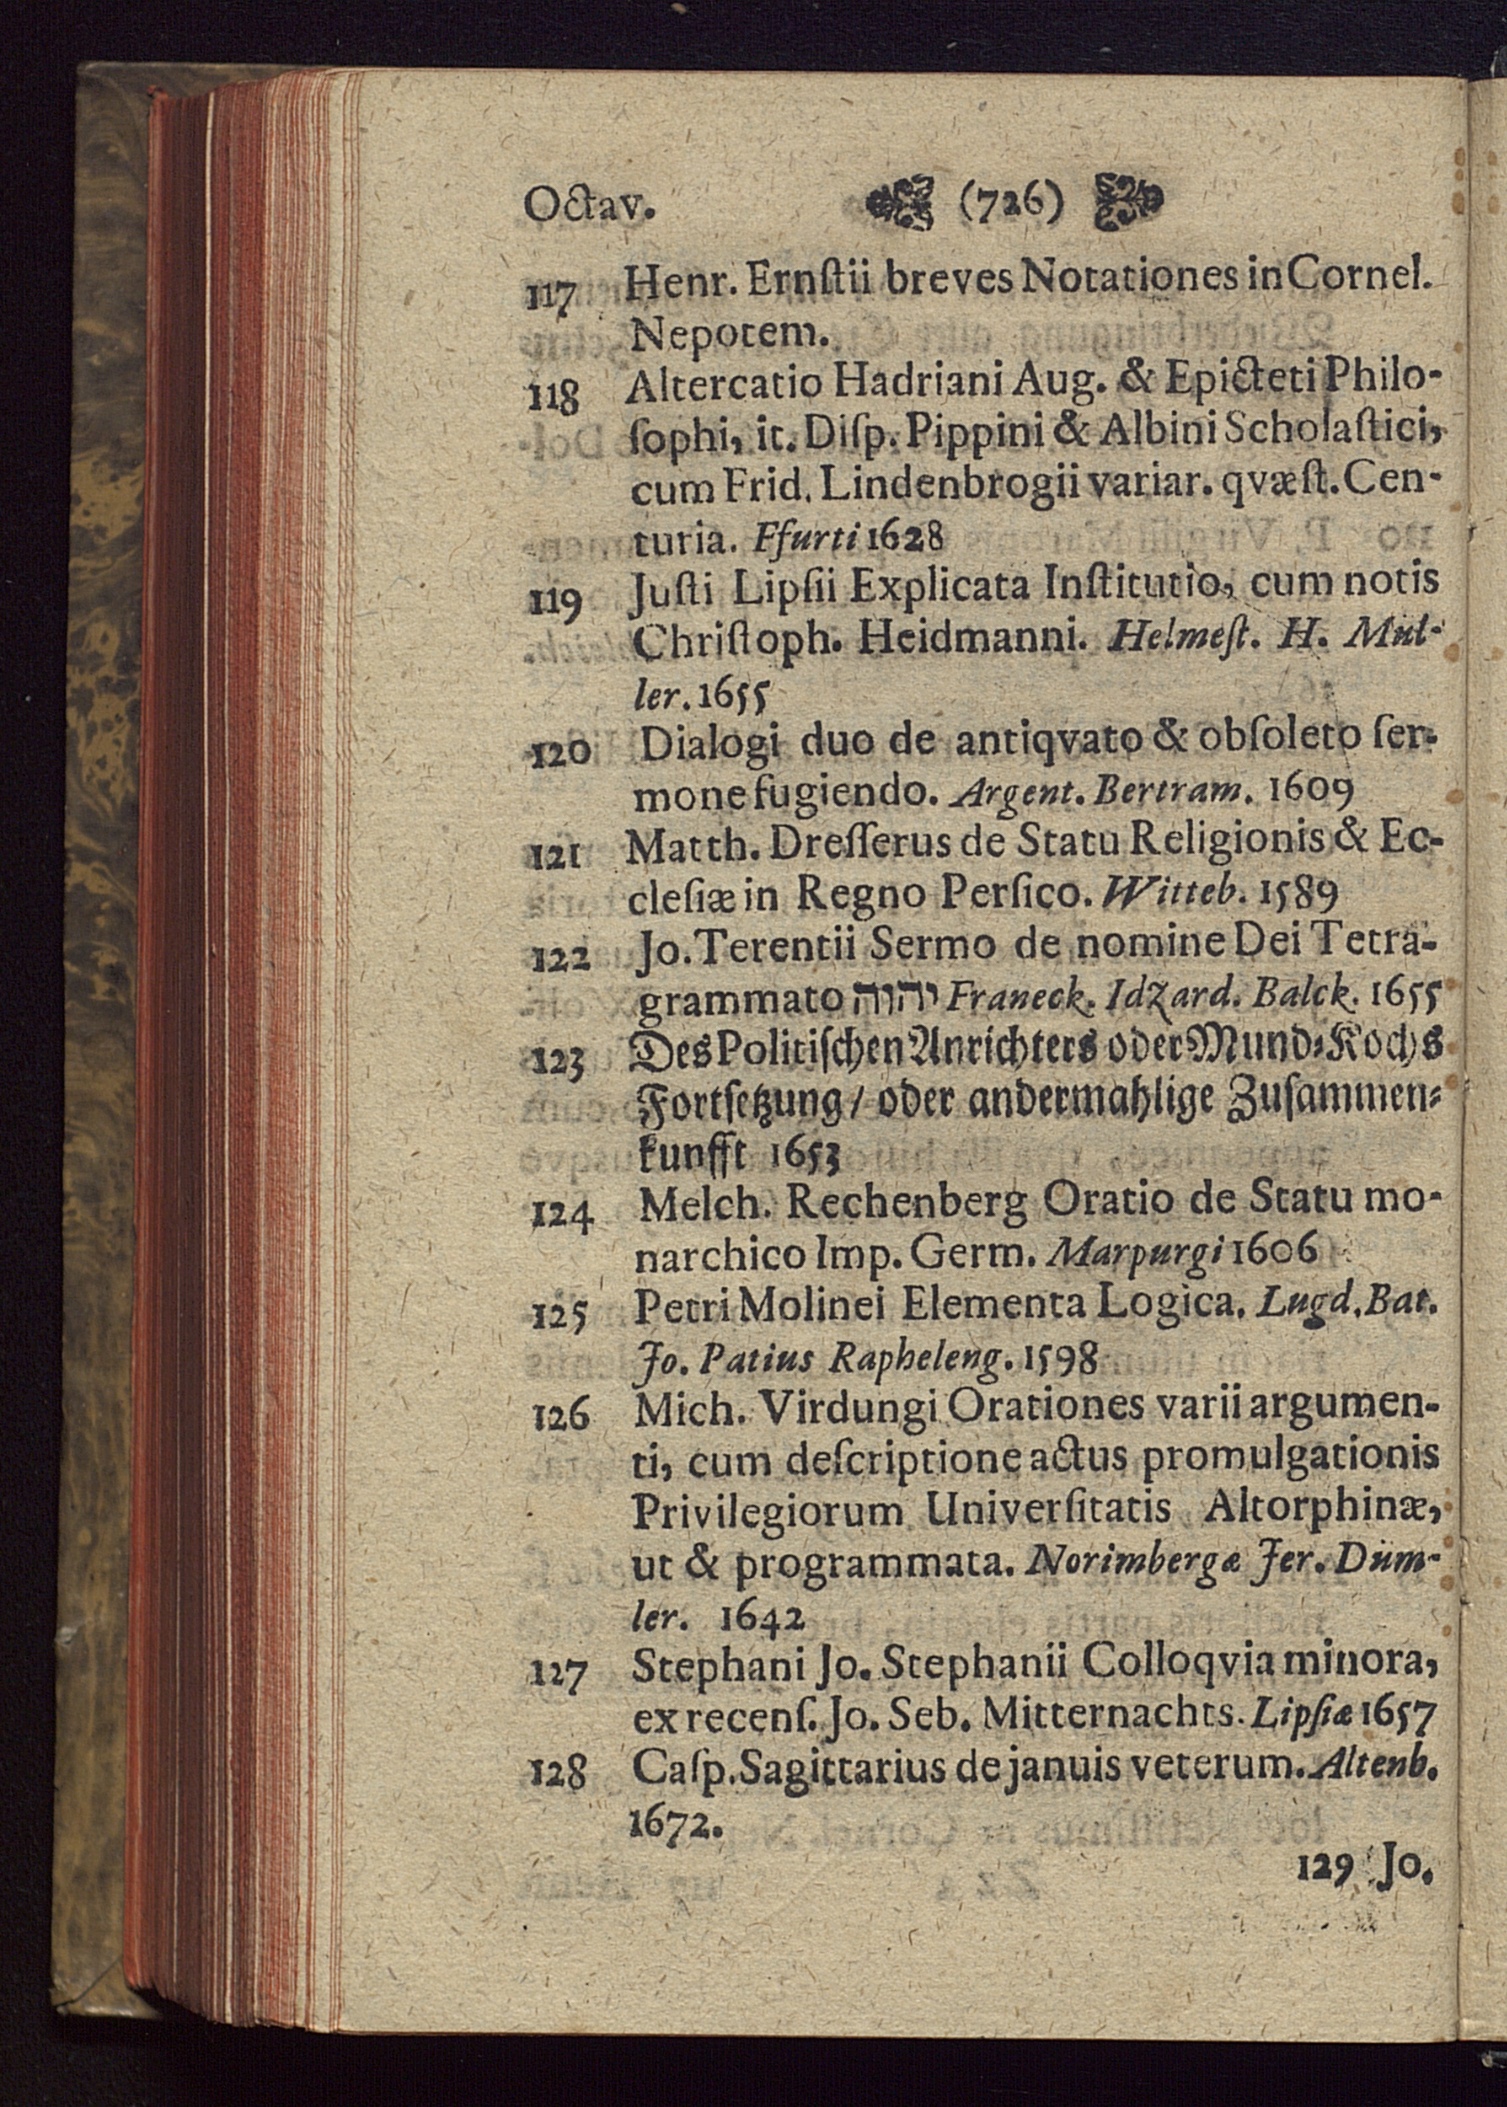 Octav. (726)
117 Henr. Ernſtii breves Notationes in Cornel.
Nepotem.
118 Altercatio Hadriani Aug. & Epicteti Philo-
ſophi, it. Diſp. Pippini & Albini Scholaſtici,
cum Frid. Lindenbrogii variar. qvæſt. Cen-
turia. Ffurti 1628
119 Juſti Lipſii Explicata Inſtitutio, cum notis
Chriſtoph. Heidmanni. Helmeſt. H. Mül-
ler. 1655
120 Dialogi duo de antiqvato & obſoleto ſer-
mone fugiendo. Argent. Bertram. 1609
121 Matth. Dreſſerus de Statu Religionis & Ec-
cleſiæ in Regno Perſico. Witteb. 1589
122 Jo. Terentii Sermo de nomine Dei Tetra-
grammato יהוה Franeck. Idzard. Balck. 1655
123 Des Politiſchen Anrichters oder Mund-Kochs
Fortſetzung / oder andermahlige Zuſammen-
kunfft 1653
124 Melch. Rechenberg Oratio de Statu mo-
narchico Imp. Germ. Marpurgi 1606
125 Petri Molinei Elementa Logica. Lugd. Bat.
Jo. Patius Rapheleng. 1598
126 Mich. Virdungi Orationes varii argumen-
ti, cum deſcriptione actus promulgationis
Privilegiorum Univerſitatis Altorphinæ,
ut & programmata. Norimbergæ Jer. Düm-
ler. 1642
127 Stephani Jo. Stephanii Colloqvia minora,
ex recenſ. Jo. Seb. Mitternachts. Lipſiæ 1657
128 Caſp. Sagittarius de januis veterum. Altenb.
1672.
129 Jo.